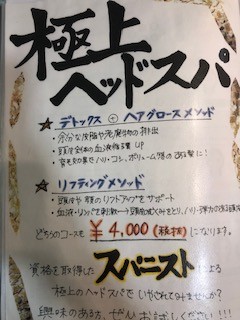 極上
ヘッドスパ
☆ デトックス ⊕ ヘアグロースメソッド
・余分な皮脂や老廃物の排出
・頭皮全体の血液循環 UP
・育毛効果でハリ・コシ、ボリューム等のお悩に!
☆ リフティングメソッド
・頭皮や顔のリフトアップをサポート
・血液・リンパを刺激
どちらのコースも ¥4,000 (税抜) になります。
資格を取得した スパニスト による
極上のヘッドスパで いやされてみませんか?
興味のある方、ぜひお試しください!!!